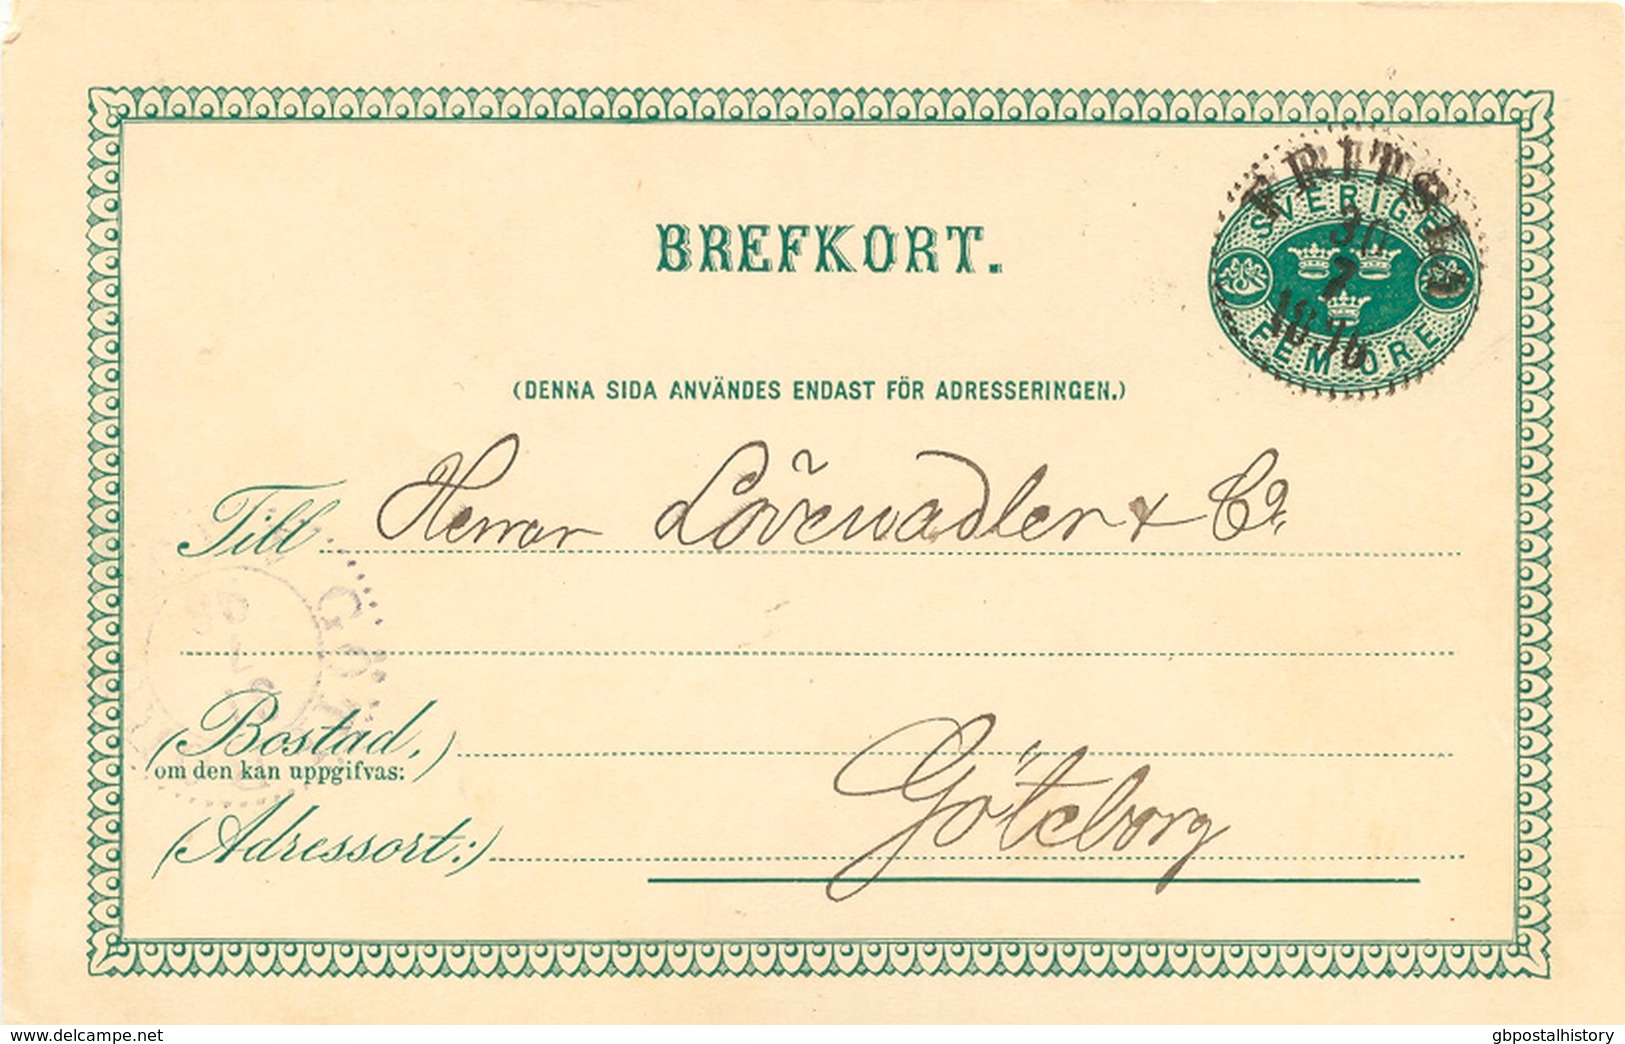 BREFKORT.
FRITSLA
30
7
SVERIGE
FEM ÖRE
(DENNA SIDA ANVÄNDES ENDAST FÖR ADRESSERINGEN.)
Till Herrar Lövenadler & Co.
GÖT
(Bostad,
om den kan uppgifvas:)
(Adressort:) Göteborg
www.delcampe.net
gbpostalhistory